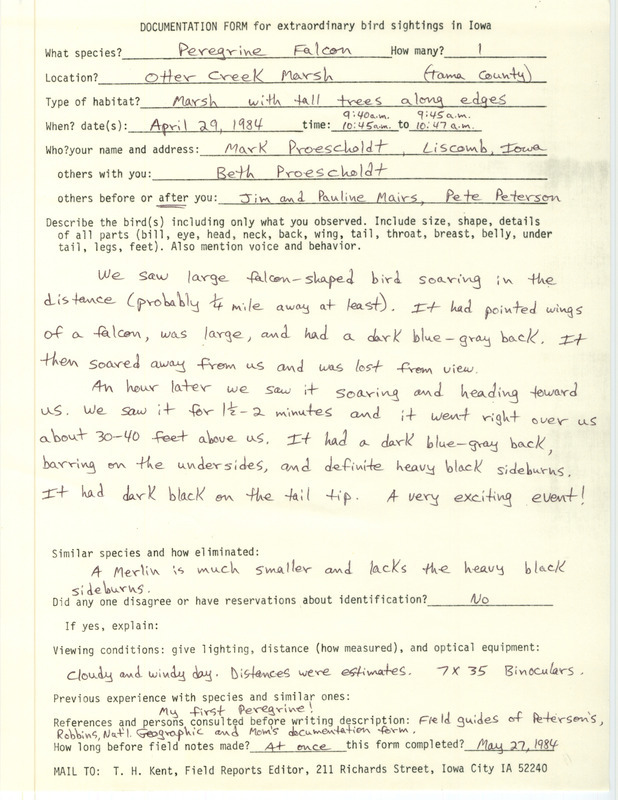 DOCUMENTATION FORM for extraordinary bird sightings in Iowa
What species? Peregrine Falcon How many? 1
Location? Otter Creek Marsh (Tama County)
Type of habitat? Marsh with tall trees along edges
9:40a.m. 9:45a.m.
When? date(s): April 29, 1984 time: 10:45a.m. to 10:47 a.m.
Who? your name and address: Mark Proescholdt, Liscomb, Iowa
others with you: Beth Proescholdt
others before or after you: Jim and Pauline Mairs, Pete Peterson
Describe the bird(s) including only what you observed. Include size, shape, details
of all parts (bill, eye, head, neck, back, wing, tail, throat, breast, belly, under
tail, legs, feet). Also mention voice and behavior.
We saw large falcon-shaped bird soaring in the
distance (probably 1/4 mile away at least). It had pointed wings
of a falcon, was large, and had a dark blue-gray back. It
then soared away from us and was lost from view.
An hour later we saw it soaring and heading toward
us. We saw it for 1½-2 minutes and it went right over us
about 30-40 feet above us. It had a dark blue-gray back,
barring on the undersides, and definite heavy black sideburns.
It had dark black on the tail tip. A very exciting event!
Similar species and how eliminated:
A Merlin is much smaller and lacks the heavy black
sideburns.
Did any one disagree or have reservations about identification? No
If yes, explain:
Viewing conditions: give lighting, distance (how measured), and optical equipment:
Cloudy and windy day. Distances were estimates. 7 X 35 Binoculars.
Previous experience with species and similar ones:
My first Peregrine!
References and persons consulted before writing description: Field guides of Peterson's,
Robbins, Nat'l. Geographic and Mom's documentation form.
How long before field notes made? At once this form completed? May 27, 1984
MAIL TO: T. H. Kent, Field Reports Editor, 211 Richards Street, Iowa City IA 52240